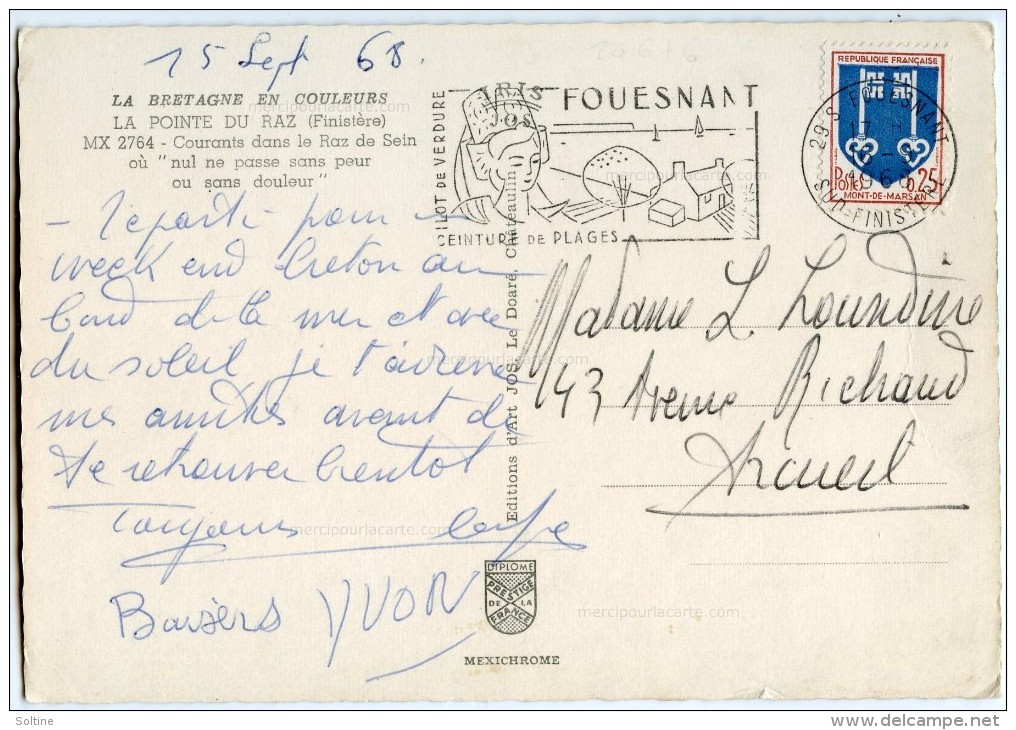 15 Sept 68.
LA BRETAGNE EN COULEURS
LA POINTE DU RAZ (Finistère)
MX 2764 - Courants dans le Raz de Sein
où "nul ne passe sans peur
ou sans douleur"
- Repartie pour un
week end breton au
bord de la mer et avec
du soleil je t'adresse
mes amitiés avant de
te retrouver bientot
Baisers YVON
FOUESNANT
ILOT DE VERDURE
CEINTURE DE PLAGES
REPUBLIQUE FRANÇAISE
Postes 0,25
MONT-DE-MARSAN
29 S FOUESNANT
17 H
16 - 9
1968
SUD-FINISTERE
Editions d'Art JOS Le Doaré, Châteaulin
Madame L. Lourdine
43 Avenue Richaud
Arcueil
DIPLOME
PRESTIGE
DE LA
FRANCE
MEXICHROME
mercipourlacarte.com
mercipourlacarte.com
mercipourlacarte.com
mercipourlacarte.com
mercipourlacarte.com
Soltine
http://www.delcampe.net